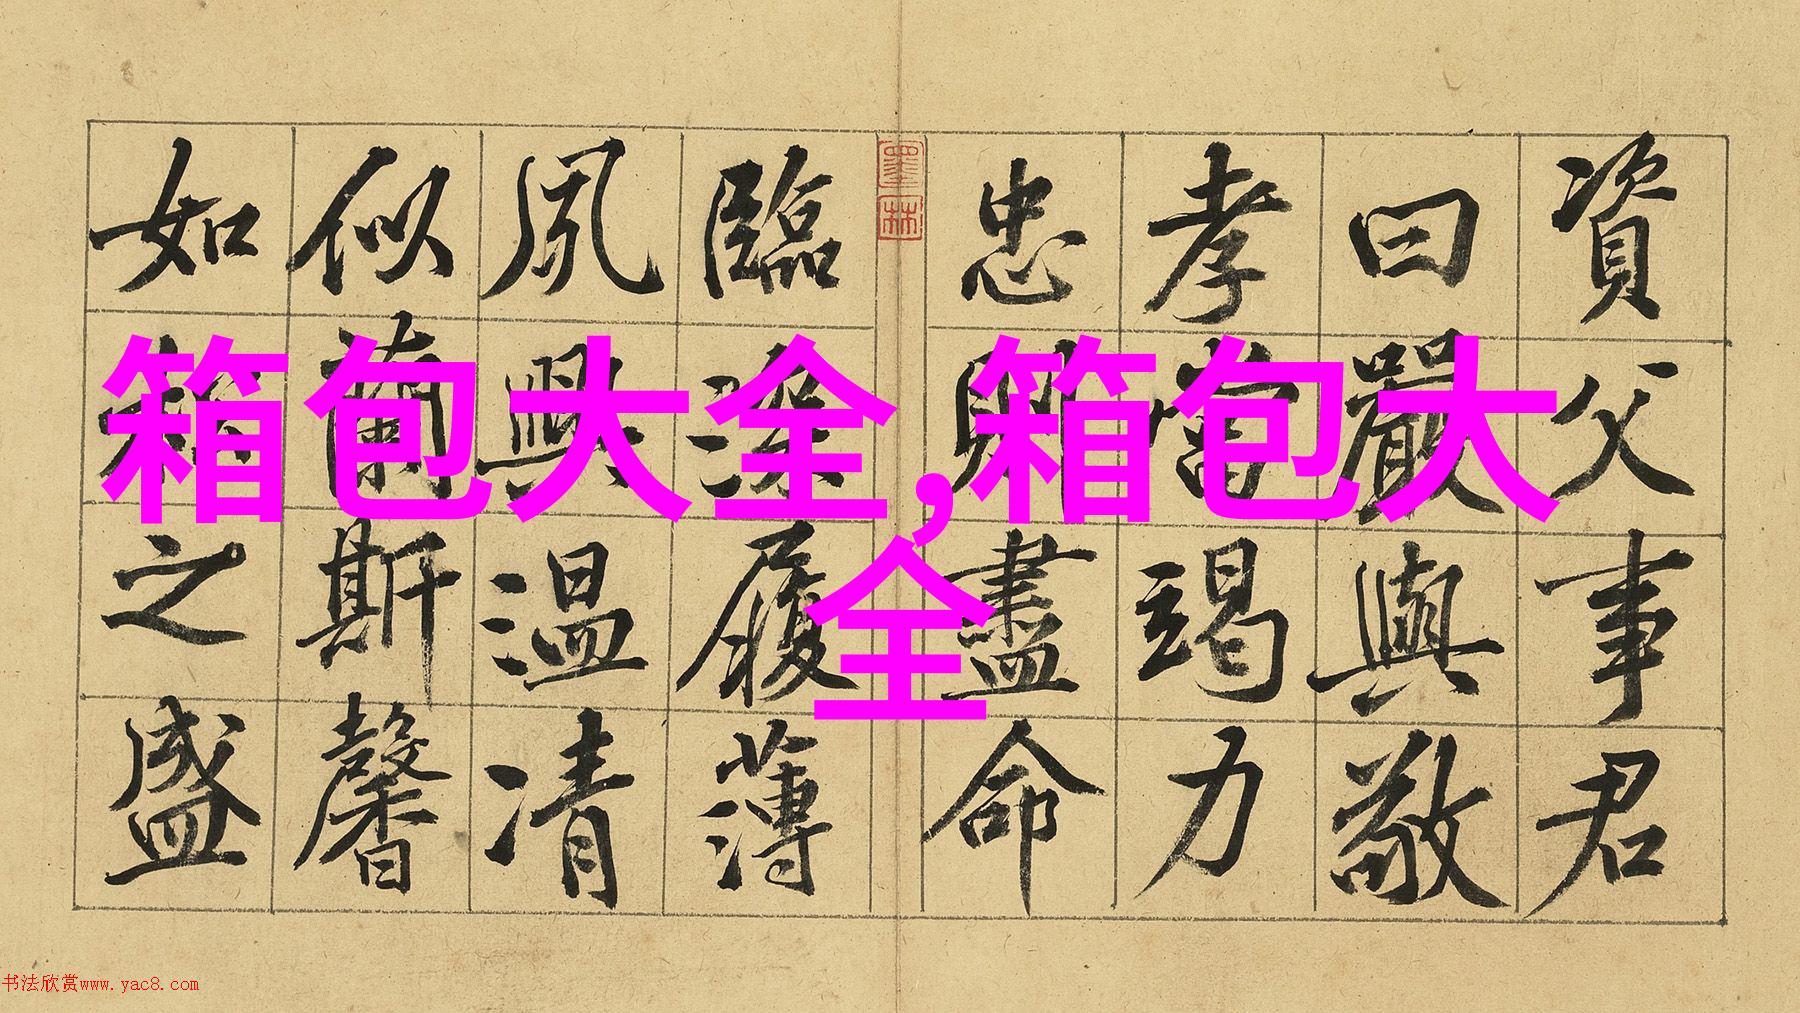 箱包大全,箱包大
全
資父事君
曰嚴與敬
孝當竭力
忠則盡命
墨林
臨深履薄
夙興温凊
似蘭斯馨
如松之盛
书法欣赏www.yac8.com